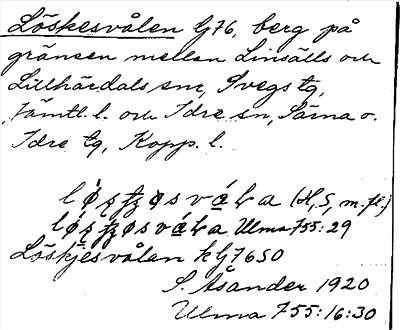 Löskesvålen G76, berg på
gränsen mellan Linsälls och
Lillhärdals snr, Svegs tg,
Jämtl. l. och Idre sn, Särna o.
Idre tg, Kopp. l.
(H, S, m. fl.)
Ulma 755:29
Löskjesvålan kG7650
S. Åsander 1920
Ulma 755:16:30